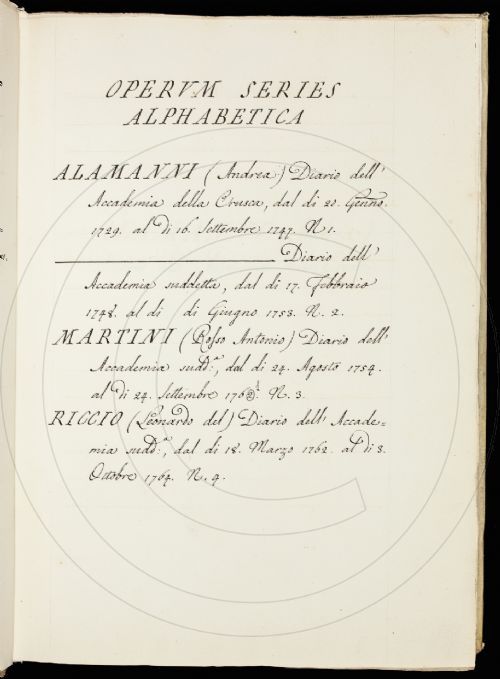 OPERVM SERIES
ALPHABETICA
ALAMANNI (Andrea) Diario dell'
Accademia della Crusca, dal dì 20. Genno.
1729. al dì 16. Settembre 1747. N 1.
Diario dell'
Accademia suddetta, dal dì 17. Febbraio
1748. al dì di Giugno 1753. N. 2.
MARTINI (Rosso Antonio) Diario dell'
Accademia sudd.ª, dal dì 24. Agosto 1754.
al dì 24. Settembre N. 3.
RICCIO (Leonardo del) Diario dell' Accade=
mia sudd.ª, dal dì 18. Marzo 1762. al dì 3.
Ottobre 1764. N. 4.